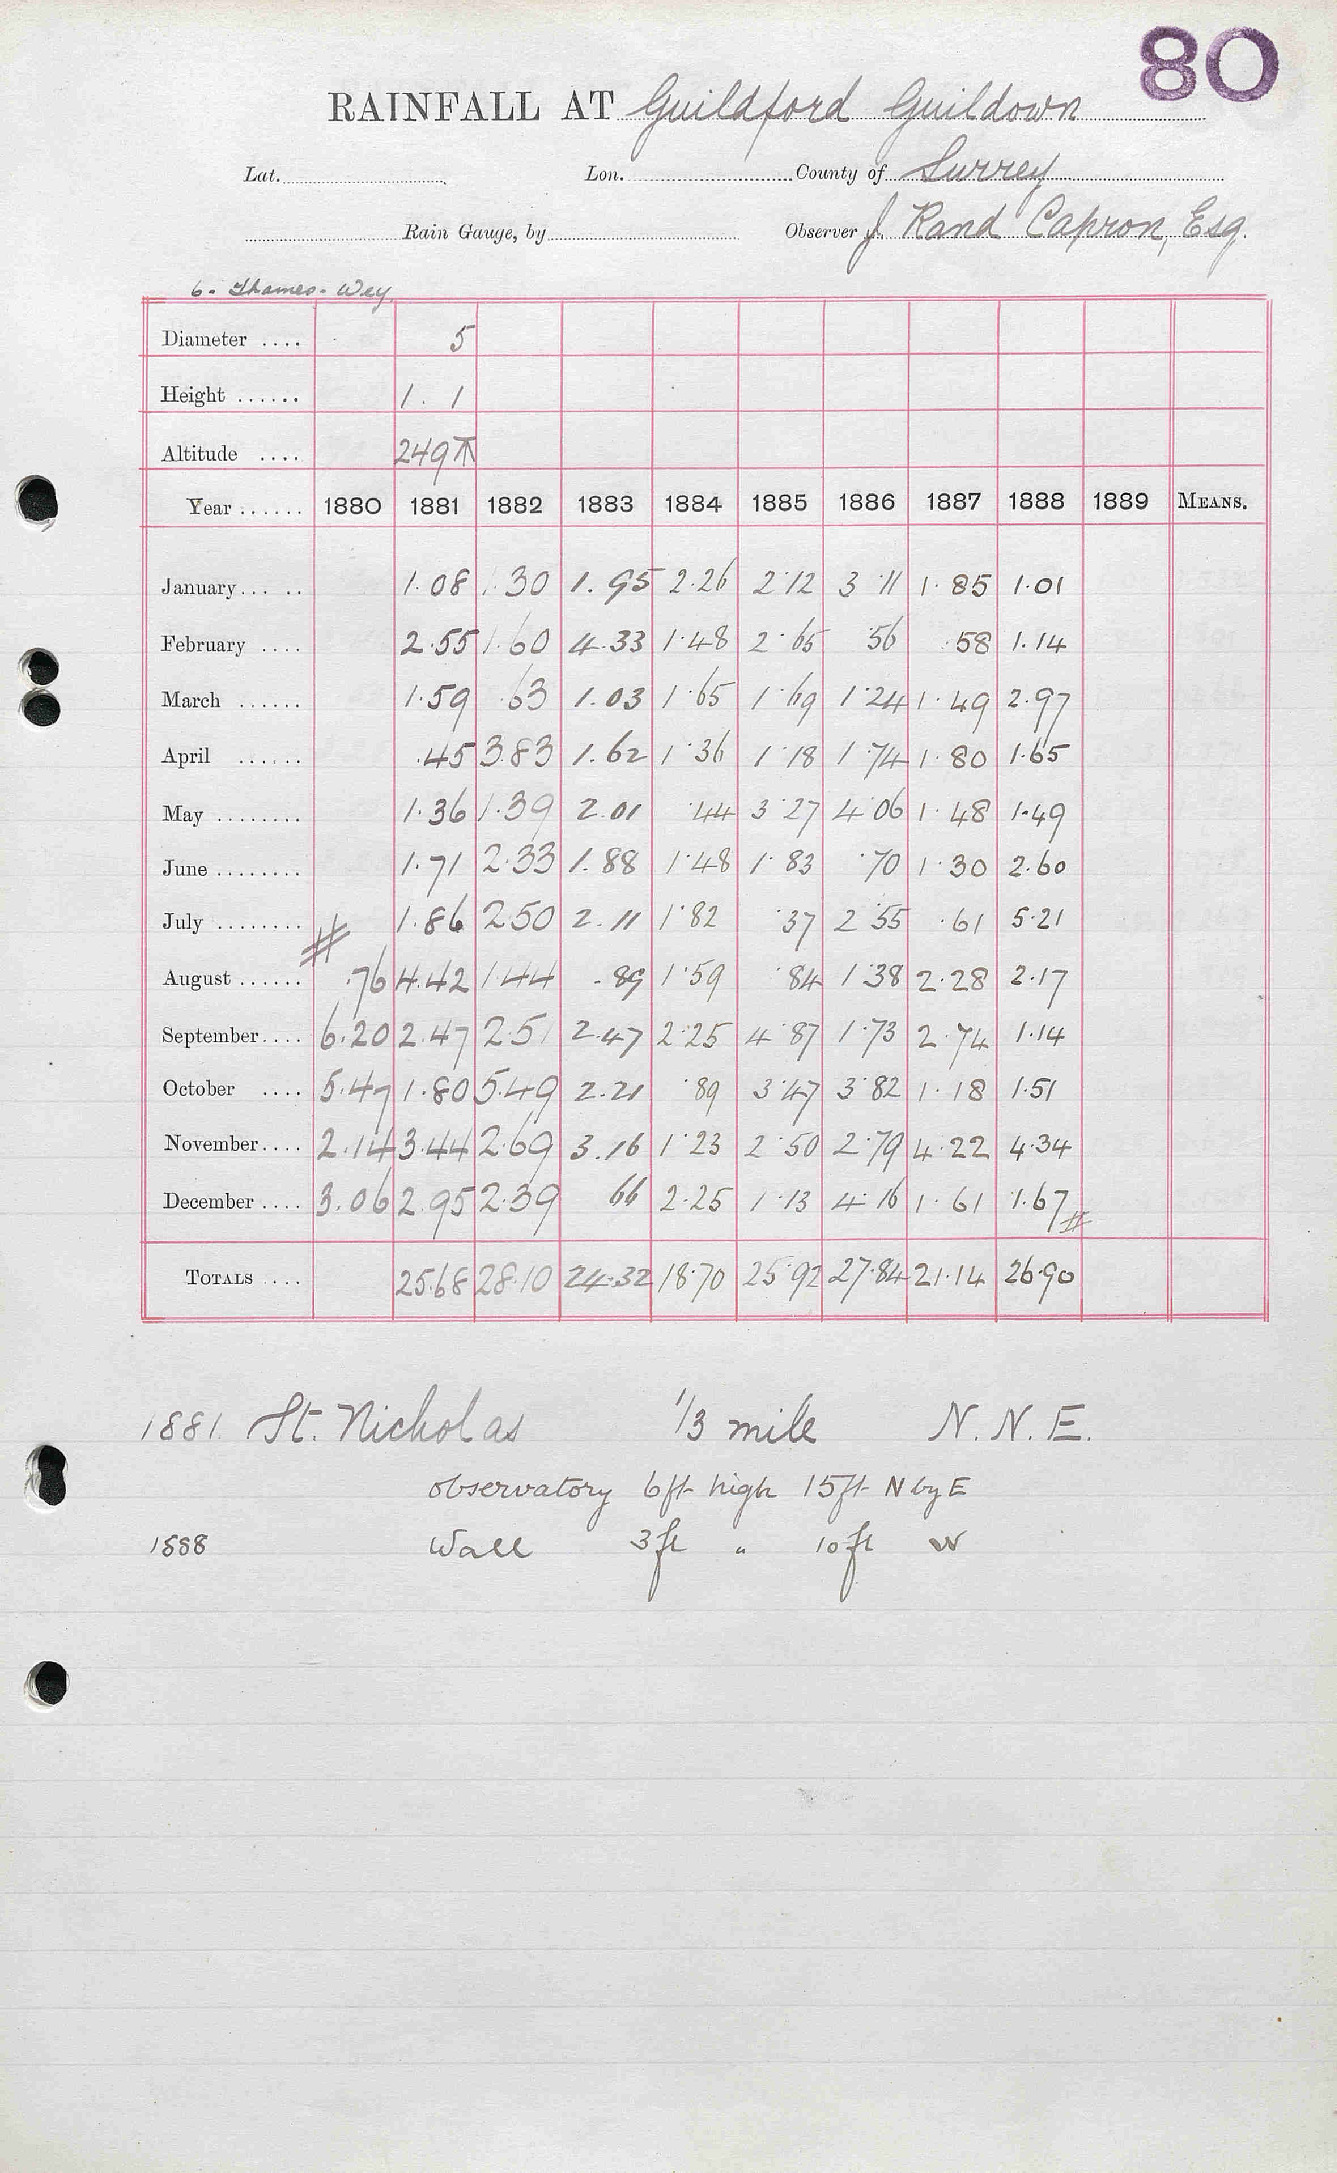 80
RAINFALL AT Guildford Guildown
Lat. Lon. County of Surrey
Rain Gauge, by Observer J. Rand Capron, Esq.
6. Thames-Wey
Diameter .... 5
Height ...... 1. 1
Altitude .... 249
Year ...... 1880 1881 1882 1883 1884 1885 1886 1887 1888 1889 MEANS.
January ... .. 1.08 1.30 1.95 2.26 2.12 3.11 1.85 1.01
February .... 2.55 1.60 4.33 1.48 2.65 56 .58 1.14
March ...... 1.59 .63 1.03 1.65 1.69 1.24 1.49 2.97
April ...... .45 3.83 1.62 1.36 1.18 1.74 1.80 1.65
May ........ 1.36 1.39 2.01 .44 3.27 4.06 1.48 1.49
June ........ 1.71 2.33 1.88 1.48 1.83 .70 1.30 2.60
July ........ 1.86 2.50 2.11 1.82 .37 2.55 .61 5.21
August ...... .76 4.42 1.44 .89 1.59 .84 1.38 2.28 2.17
September .... 6.20 2.47 2.51 2.47 2.25 4.87 1.73 2.74 1.14
October .... 5.47 1.80 5.49 2.21 .89 3.47 3.82 1.18 1.51
November .... 2.14 3.44 2.69 3.16 1.23 2.50 2.79 4.22 4.34
December .... 3.06 2.95 2.39 66 2.25 1.13 4.16 1.61 1.67
TOTALS .... 25.68 28.10 24.32 18.70 25.92 27.84 21.14 26.90
1881. St. Nicholas 1/3 mile N. N. E.
observatory 6ft high 15ft N by E
1888 Wall 3ft " 10ft W